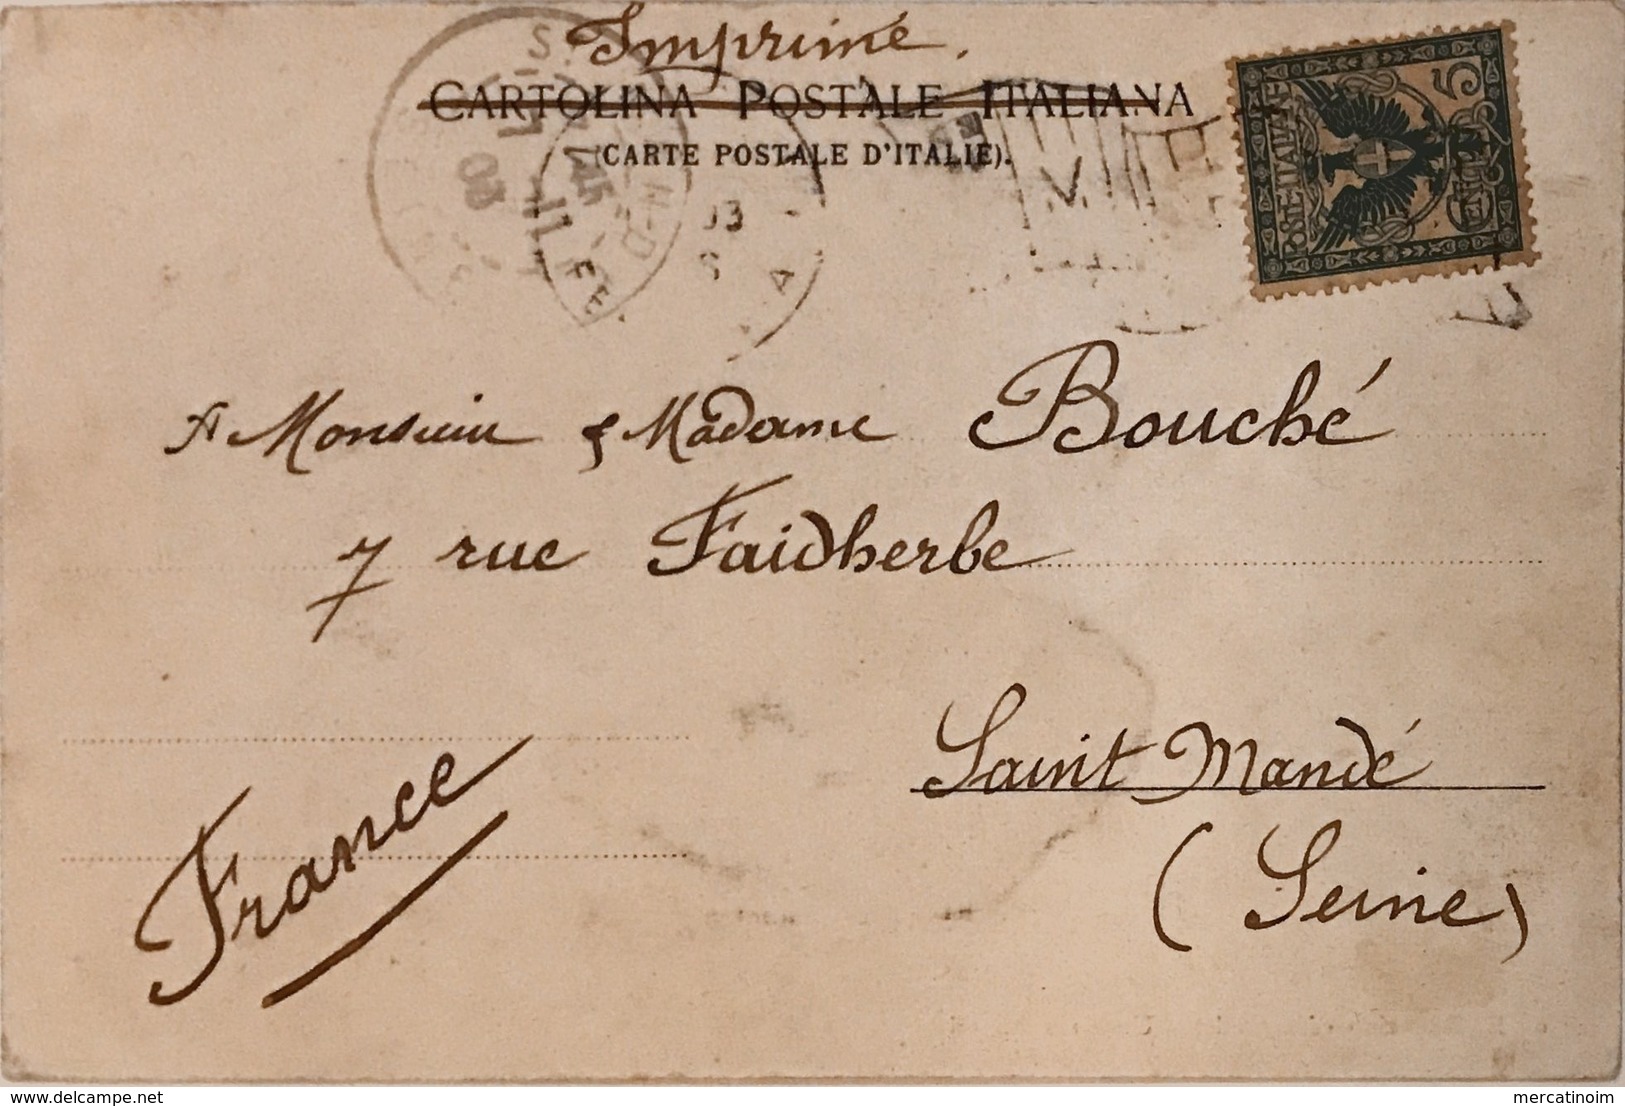 Imprimé.
CARTOLINA POSTALE ITALIANA
(CARTE POSTALE D'ITALIE).
POSTE ITALIANE
CENT. 5
03
1145
11
FE
03
V
A Monsieur & Madame Bouché
7 rue Faidherbe
Saint Mandé
(Seine)
France
delcampe.net
mercatinoim